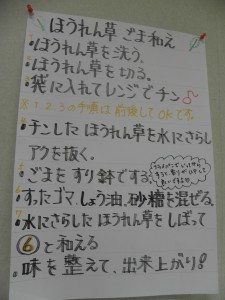 ほうれん草 ごま和え
1. ほうれん草を洗う。
2. ほうれん草を切る。
3. 袋に入れてレンジでチン♪
※1.2.3の手順は前後してOKです。
4. チンしたほうれん草を水にさらし
アクを抜く。
5. ごまをすり鉢でする。
6. すったゴマ、しょう油、砂糖を混ぜる。
7. 水にさらしたほうれん草をしぼって
⑥と和える
8. 味を整えて、出来上がり!